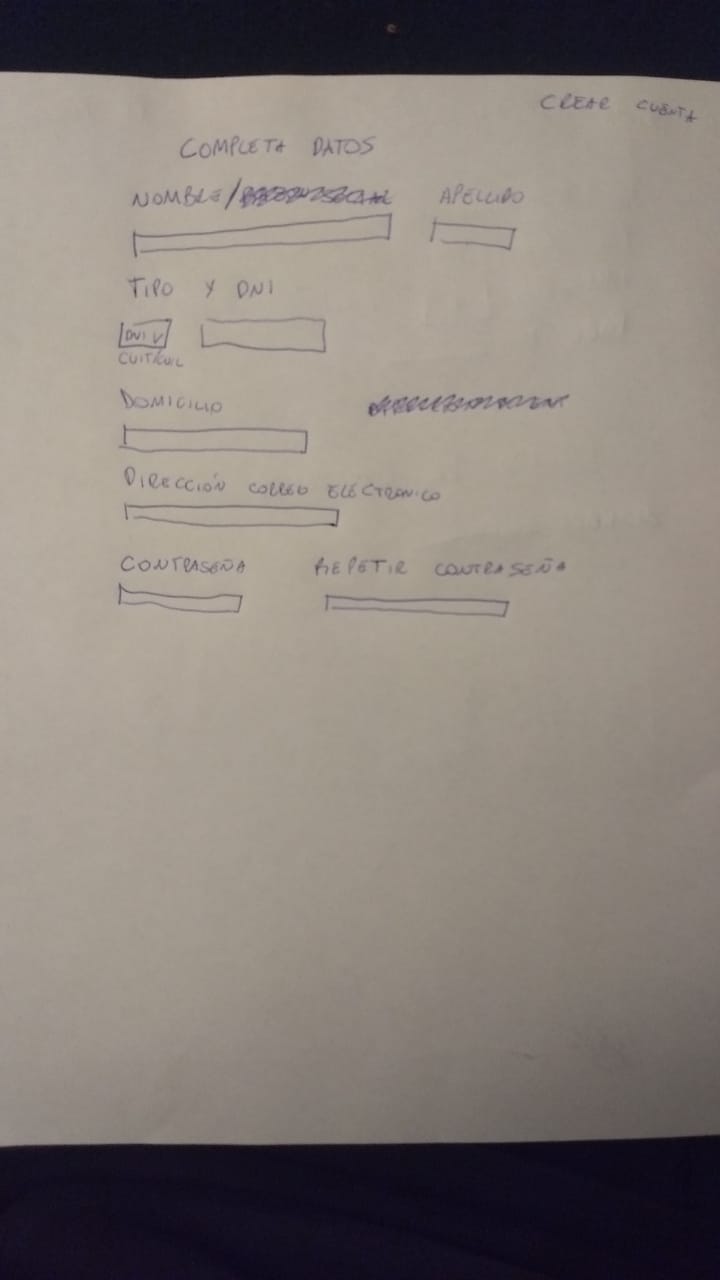 CREAR CUENTA
COMPLETA DATOS
NOMBRE/ APELLIDO
TIPO Y DNI
DNI V
CUIT/CUIL
DOMICILIO
DIRECCIÓN CORREO ELECTRONICO
CONTRASEÑA REPETIR CONTRASEÑA